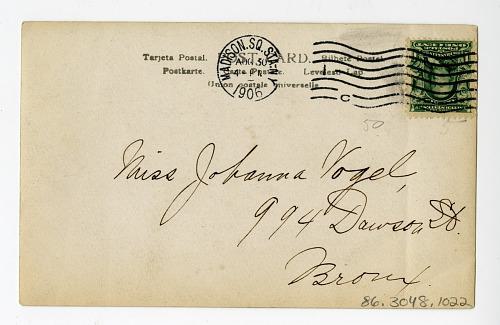 Tarjeta Postal. POST CARD. Bilhete Postal
Postkarte. Carte Postale. Levelező-Lap
Union postale universelle
MADISON. SQ. STA. N.Y.
AUG 30
1906
1
C
50
Miss Johanna Vogel,
994 Dawson St.
Bronx.
86.3048.1022